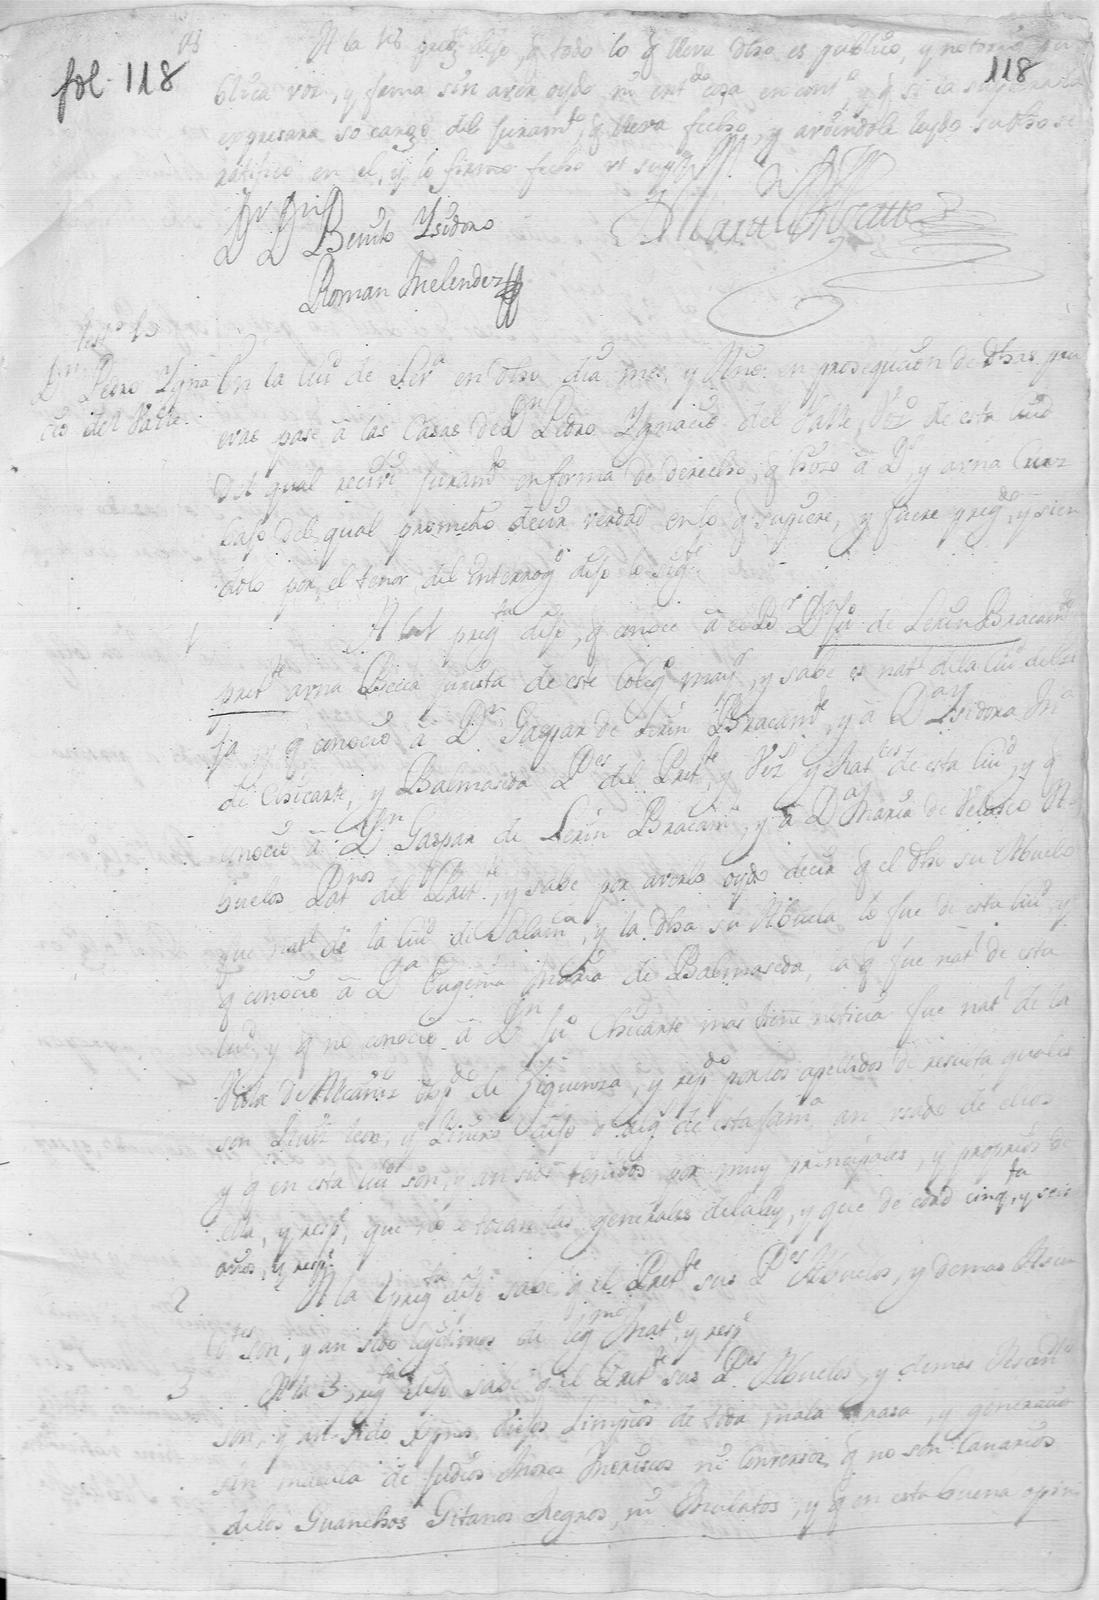 fol. 118
118
A la 18 preg.ta dijo, q todo lo q lleva dho es publico, y notorio pu
blica voz, y fama sin aver oydo ni ent.do cosa en cont.o y q si la supiera la
expresara so cargo del juram.to q lleva fecho, y aviendole leydo su dho se
ratifico en el, y lo firmo fecho ut sup.
D.r D.n Benito Ysidoro
Roman Melendez
test.o 6.o
D.n Pedro Ygna
cio del Valle.
En la Ciu.d de Sev.a en dho dia mes, y Año. en prosequcion de dhas pru
evas pase â las Casas de D.n Pedro Ygnacio del Valle Vez.o de esta Ciud
del qual recivi juram.to en forma de derecho, q hizo â D.s y a una Cruz
bajo del qual prometio decir verdad en lo q supiere, y fuere preg.do y sien
dolo por el tenor del Interrog.o dijo lo sig.te
1
A la 1 preg.ta dijo, q conoce â el D.r D.n Ju.o de Lerin Bracam.te
pret.te a una Beca Jurista de este Coleg.o may.r y sabe es nat.l de la Ciu.d de
y q conocio â D.n Gaspar de Lerin Bracam.te, y â D.a Ysidora
de Chicarte, y Balmaseda P.es del Pret.te y Vez.s y Nat.les de esta Ciu.d, y q
conocio â D.n Gaspar de Lerin Bracam.te, y â D.a Maria de Velasco A-
buelos Pat.nos del Pret.te, y sabe por averlo oydo decir q el dho su Abuelo
fue nat.l de la Ciu.d de Salam.ca, y la dha su Abuela lo fue de esta Ciu.d y
q conocio â D.a Eugenia Maria de Balmaseda, la q fue nat.l de esta
Ciu.d, y q no conocio â D.n Ju.o Chicarte mas tiene noticia fue nat.l de la
Villa de obisp.do de Ziguenza, y resp.do por los apellidos de resulta quales
son y dijo q de esta fam.a an usado de ellos
y q en esta Ciu.d son, y an sido tenidos por muy principales, y
ella, y resp.e que no le tocan las generales de la ley, y que de edad cinq.ta, y seis
años, y resp.e
2
A la 2 preg.ta dijo sabe q el Pret.te sus P.es Abuelos, y demas Ascen
d.tes son, y an sido legitimos de leg.mo Mat.o, y resp.e
3
A la 3 preg.ta dijo sabe q el Pret.te sus P.es Abuelos, y demas Ascend.tes
son, y an sido Xpnos viejos Limpios de toda mala raza, y generacion
sin macula de Judios Moros Moriscos ni Conversos, q no son Canarios
de los Guanchos Gitanos Negros, ni Mulatos, y q en esta buena opin